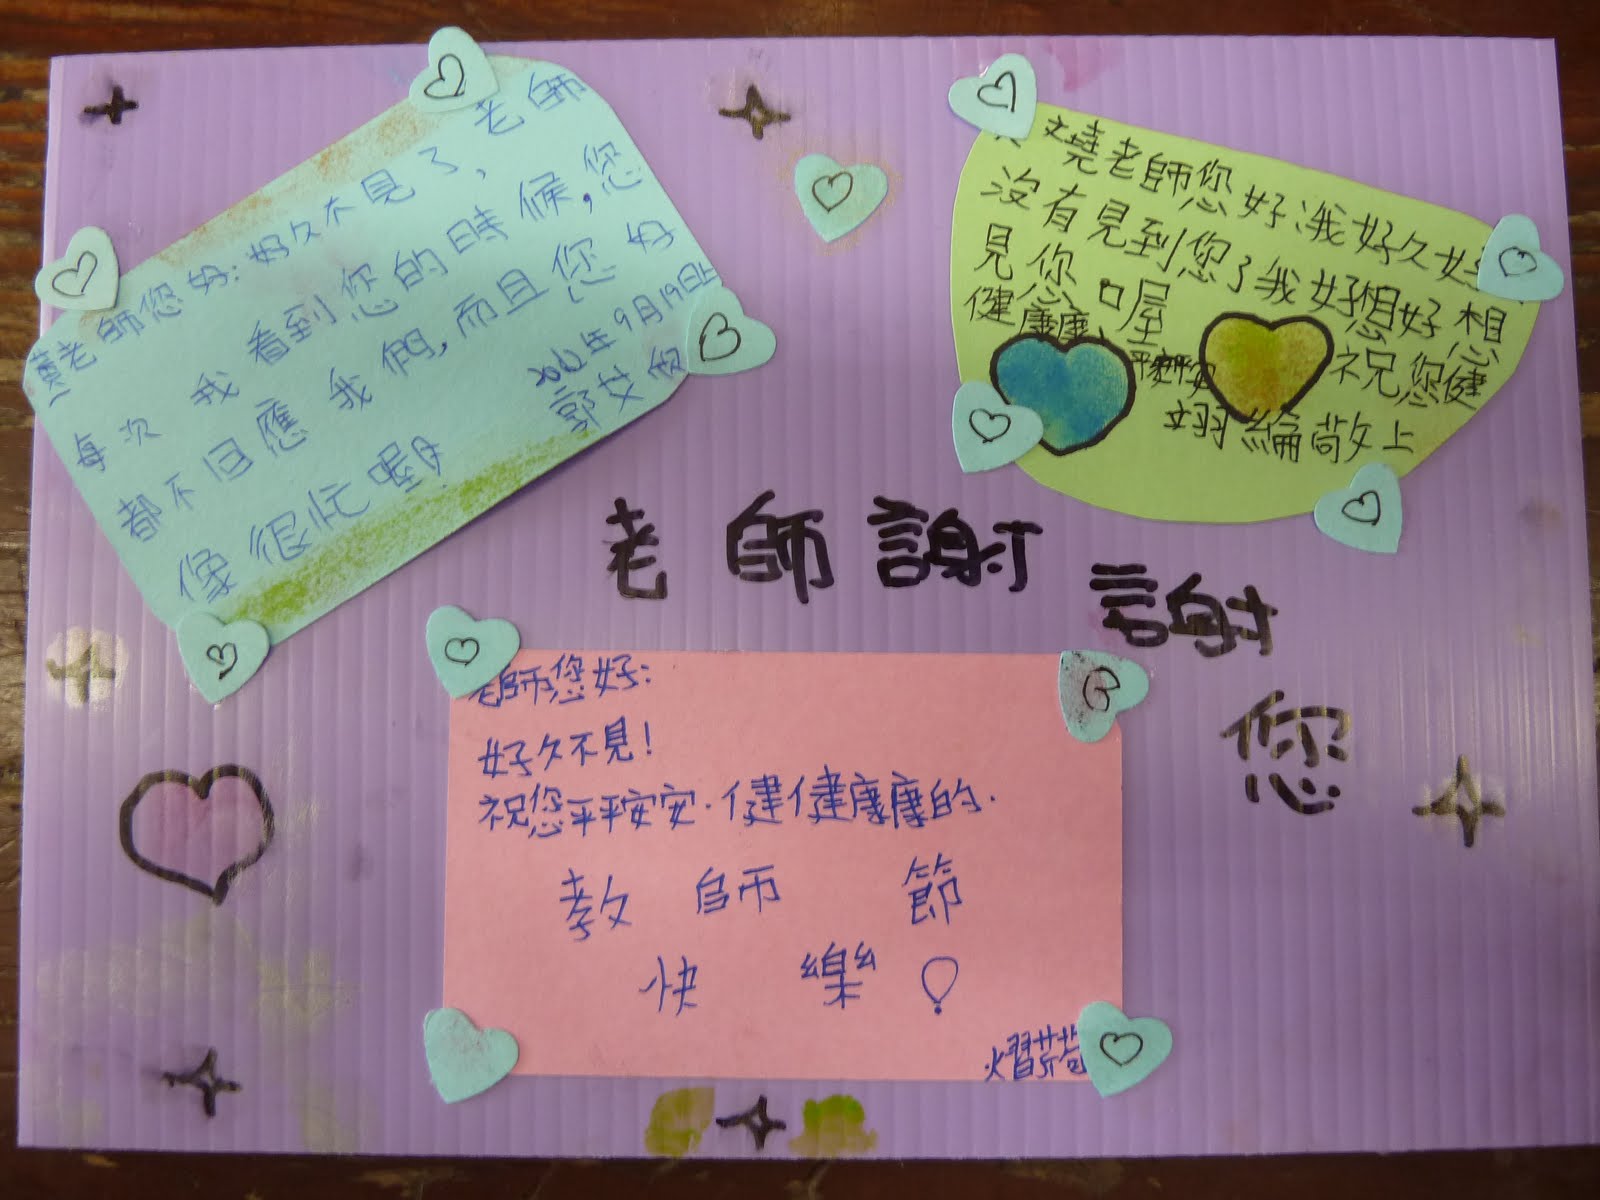 老師您好:好久不見了,老師
每次我看到您的時候,您
都不回應我們,而且您好
像很忙喔!
年9月19日上
郭艾
文堯老師您好 我好久好
沒有見到您了我好想好想
見你喔 祝您健
健康康、平安平安
翊綸敬上
老師謝謝您
老師您好:
好久不見!
祝您平平安安.健健康康的.
教師節
快樂!